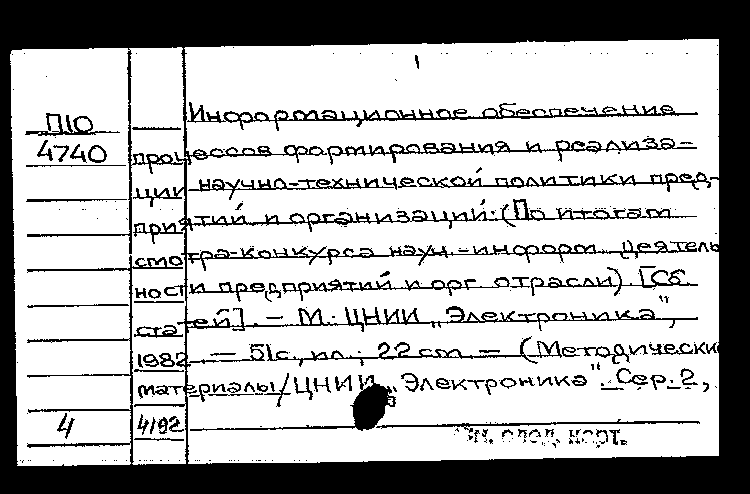 П10
4740
Информационное обеспечение
процессов формирования и реализа-
ции научно-технической политики пред-
приятий и организаций: (По итогам
смотра-конкурса науч.-информ. деятель
ности предприятий и орг. отрасли). [Сб.
статей]. - М.: ЦНИИ „Электроника",
1982. - 51с., ил.; 22 cm. - (Методические
материалы/ЦНИИ „Электроника". Сер. 2,
4
4192
См. след. карт.